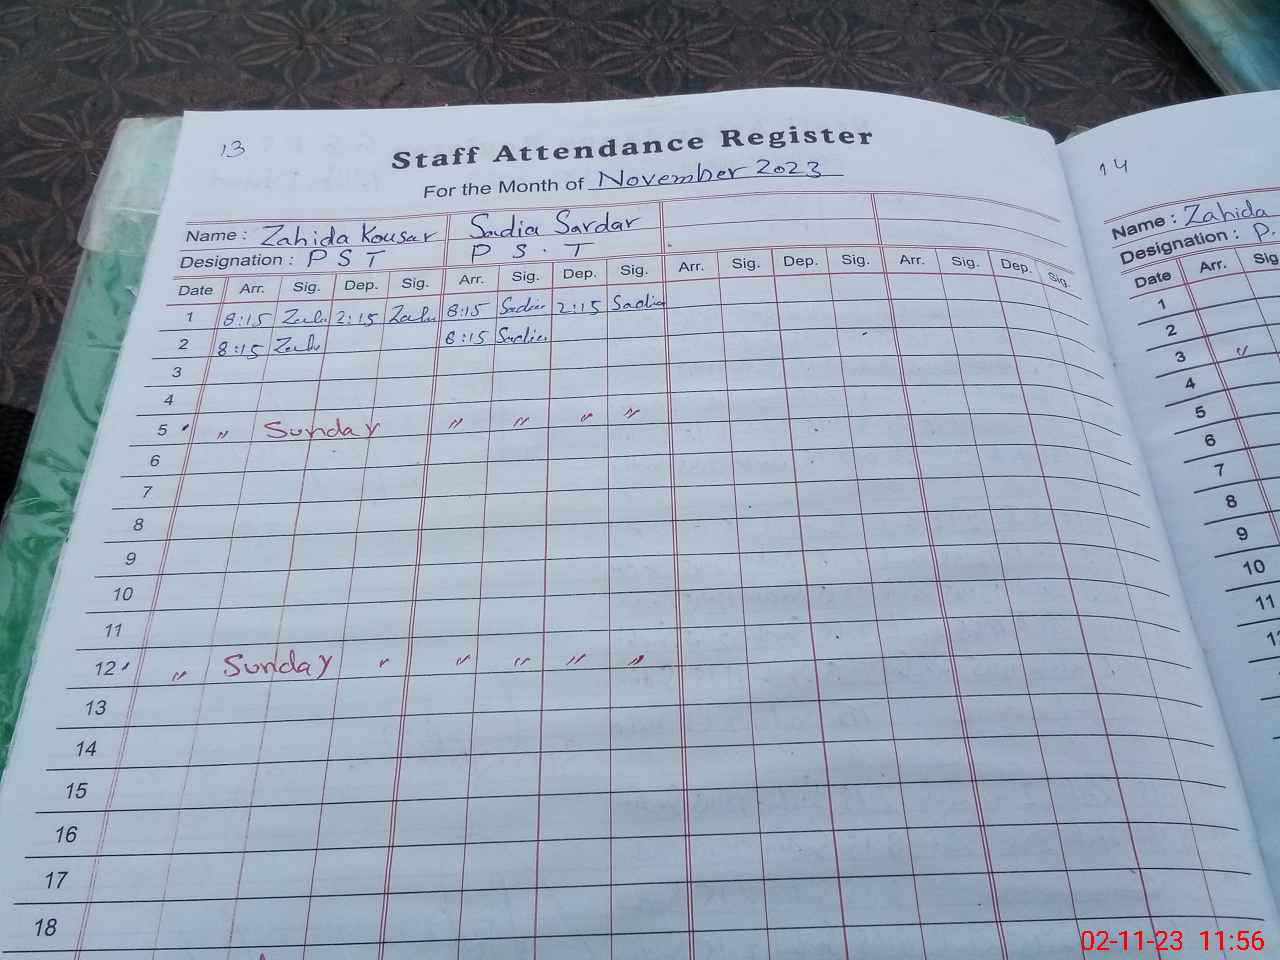 13
Staff Attendance Register
For the Month of November 2023
Name : Zahida Kousar Sadia Sardar
Designation : P S T P S . T
Date Arr. Sig. Dep. Sig. Arr. Sig. Dep. Sig. Arr. Sig. Dep. Sig. Arr. Sig. Dep. Sig.
1 8:15 2:15 8:15 Sadia 2:15 Sadia
2 8:15 8:15 Sadia
3
4
5 " Sunday " " " "
6
7
8
9
10
11
12 " Sunday " " " " "
13
14
15
16
17
18
14
Name : Zahida
Designation : P.
Date Arr. Sig
1
2
3 "
4
5
6
7
8
9
10
11
02-11-23 11:56